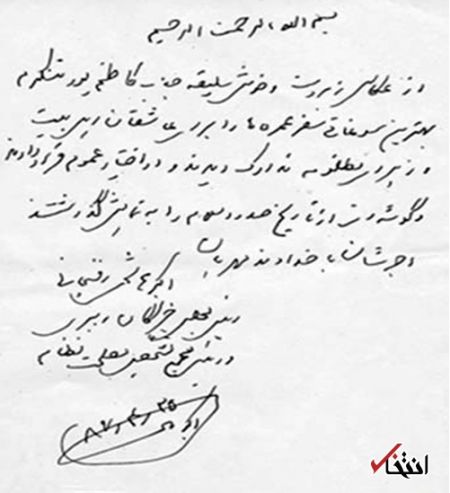 بسم الله الرحمن الرحیم
از عکاس زبردست و خوش سلیقه جناب کاظم پور متشکرم
بهترین سوغاتی سفر عمره ما را برای عاشقان اهل بیت
و زهرای مظلومه تدارک دیدند و در اختیار عموم قرار دادند
و گوشه ای از تاریخ صدر اسلام را به نمایش گذاشتند
اجرشان با خداوند مهربان
اکبر هاشمی رفسنجانی
رئیس مجلس خبرگان رهبری
و رئیس مجمع تشخیص مصلحت نظام
انتخاب